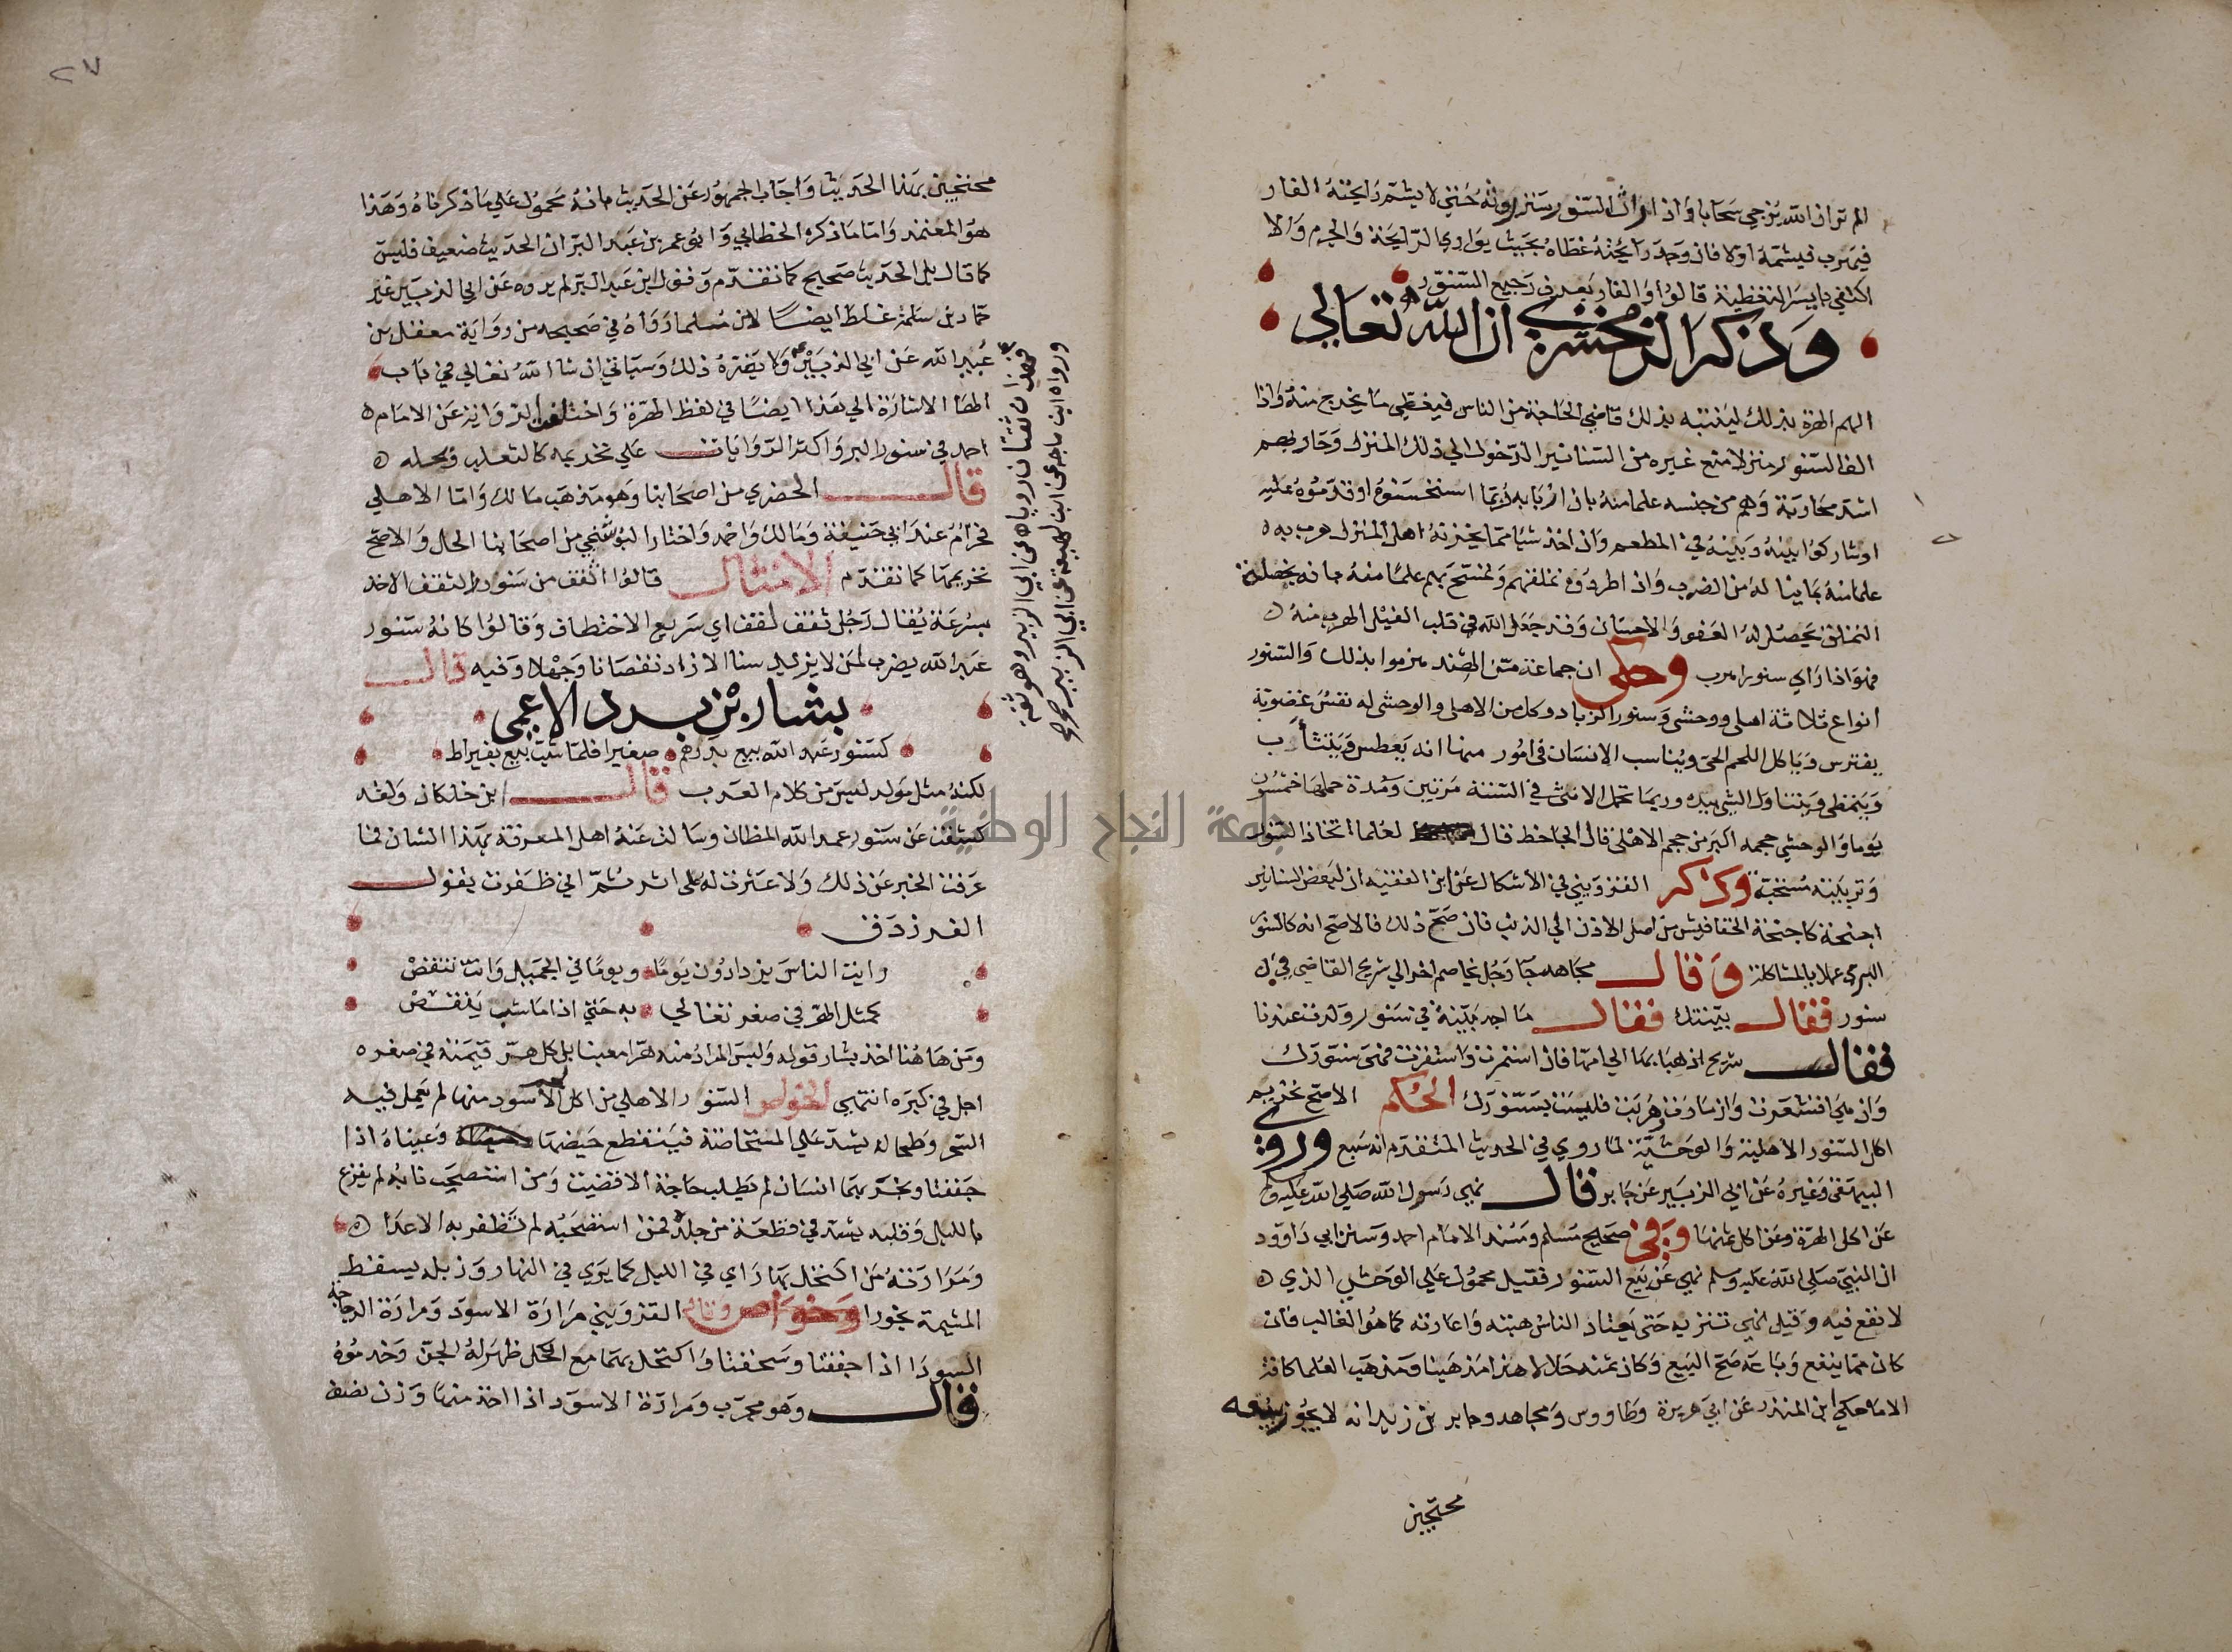 الم تر ان الله يزجي سحابا واذا راث السنور ستر روثه حتى لا يشم رايحته الفار
فيهرب فيشمه اولا فان وجد رايحته غطاه بحيث يواري الرايحة والجرم والا
اكتفى بايسر التغطية قالوا والفار يعرف رجيع السنور
وذكر الزمخشري ان الله تعالي
الهم الهرة بذلك ليتنبه بذلك قاضي الحاجة من الناس فيغطي ما يخرج منه واذا
الف السنور منزلا منع غيره من السنانير الدخول الي ذلك المنزل وحاربهم
اشد محاربة وهم من جنسه علما منه بان اربابه ربما استحسنوه او قدموه عليه
او شاركوا بينه وبينه في المطعم وان اخذ شيا مما يخزنه اهل المنزل هرب به
علما منه بما يناله من الضرب واذا طردوه تملقهم وتمسح بهم علما منه بانه يخلصه
التملق يحصل له العفو والاحسان وقد جعل الله في قلب الفيل الهرب منه
فهو اذا راي سنورا هرب وحكي ان جماعة من الهند هزموا بذلك والسنور
انواع ثلاثة اهلي ووحشي وسنور الزباد وكل من الاهلي والوحشي له نفس غضوبة
يفترس وياكل اللحم الحي ويناسب الانسان في امور منها انه يعطس ويتثاوب
ويتمطى ويتناول الشي بيده وربما تحمل الانثى في السنة مرتين ومدة حملها خمسون
يوما والوحشي حجمه اكبر من حجم الاهلي قال الجاحظ قال العلما اتخاذ السنور
وتربيته مستحبة وذكر القزويني في الاشكال عن ابن الفقيه ان لبعض السنانير
اجنحة كاجنحة الخفافيش من اصل الاذن الي الذنب فان صح ذلك فالاصح انه كالسنور
البري عملا بالمشاكلة وقال مجاهد جا رجل يخاصم اخر الي شريح القاضي في
سنور فقال بينتك فقال ما اجد بينة في سنور ولدت عندنا
فقال شريح اذهبا بها الي امها فان استمرت واستقرت فهي سنورك
وان هي اقشعرت وازبارت وهربت فليست بسنورك الحكم الاصح تحريم
اكل السنور الاهلية والوحشية لما روي في الحديث المتقدم انه سبع وروى
البيهقي وغيره عن ابي الزبير عن جابر قال نهي رسول الله صلي الله عليه وسلم
عن اكل الهرة وعن اكل ثمنها وفي صحيح مسلم ومسند الامام احمد وسنن ابي داوود
ان النبي صلي الله عليه وسلم نهي عن بيع السنور فقيل محمول علي الوحشي الذي
لا نفع فيه وقيل نهي تنزيه حتى يعتاد الناس هبته واعارته كما هو الغالب فان
كان مما ينفع وباعه صح البيع وكان ثمنه حلالا هذا مذهبنا ومذهب العلما كافة
الا ما حكي ابن المنذر عن ابي هريرة وطاووس ومجاهد وجابر بن زيد انه لا يجوز بيعه
محتجين
جامعة النجاح الوطنية
٢٧
محتجين بهذا الحديث واجاب الجمهور عن الحديث بانه محمول علي ما ذكرناه وهذا
هو المعتمد واما ما ذكره الخطابي وابو عمر بن عبد البر ان الحديث ضعيف فليس
كما قال بل الحديث صحيح كما تقدم وقول ابن عبد البر لم يروه عن ابي الزبير غير
حماد بن سلمة غلط ايضا لان مسلما رواه في صحيحه من رواية معقل بن
عبيد الله عن ابي الزبير ولا يضره ذلك وسياتي ان شا الله تعالي في باب
الها الاشارة الي هذا ايضا في لفظ الهرة واختلفت الرواية عن الامام
احمد في سنور البر واكثر الروايات علي تحريمه كالثعلب وبحله
قال الحضري من اصحابنا وهو مذهب مالك واما الاهلي
فحرام عند ابي حنيفة ومالك واحمد واختار البوشنجي من اصحابنا الحل والاصح
تحريمها كما تقدم الامثال قالوا اثقف من سنور الثقف الاخذ
بسرعة يقال رجل ثقف لقف اي سريع الاختطاف وقالوا كانه سنور
عبد الله يضرب لمن لا يزيد سنا الا زاد نقصانا وجهلا وفيه قال
بشار بن برد الاعمى
كسنور عبد الله بيع بدرهم صغيرا فلما شب بيع بقيراط
لكنه مثل مولد ليس من كلام العرب قال ابن خلكان ولقد
كشفت عن سنور عبد الله المظان وسالت عنه اهل المعرفة بهذا الشان فما
عرفت الخبر عن ذلك ولا عثرت له على اثر ثم اني ظفرت بقول
الفرزدق
رايت الناس يزدادون يوما ويوما في الجميل وانت تنقص
كمثل الهر في صغر تغالي به حتي اذا ما شب يرخص
ومن هاهنا اخذ بشار قوله وليس المراد منه هرا معينا بل كل هر قيمته في صغره
اجل في كبره انتهى الخواص السنور الاهلي من اكل لحم الاسود منها لم يعمل فيه
السحر وطحاله يشد علي المستحاضة فينقطع حيضها وعيناه اذا
جففتا وتبخر بهما انسان لم يطلب حاجة الا قضيت ومن استصحب نابه لم يفزع
بالليل وقلبه يشد في قطعة من جلده فمن استصحبه لم تظفر به الاعدا
ومرارته من اكتحل بها راي في الليل كما يري في النهار وزبله يسقط
المشيمة بخورا وخواص وقال القزويني مرارة الاسود ومرارة الدجاجة
السودا اذا جففتا وسحقتا واكتحل بهما مع الكحل ظهر له الجن وخدموه
قال وهو مجرب ومرارة الاسود اذا اخذ منها وزن نصف
فهذان ثقتان روياه عن ابي الزبير وهو ثقة
ورواه ابن ماجه عن ابن لهيعة عن ابي الزبير صح